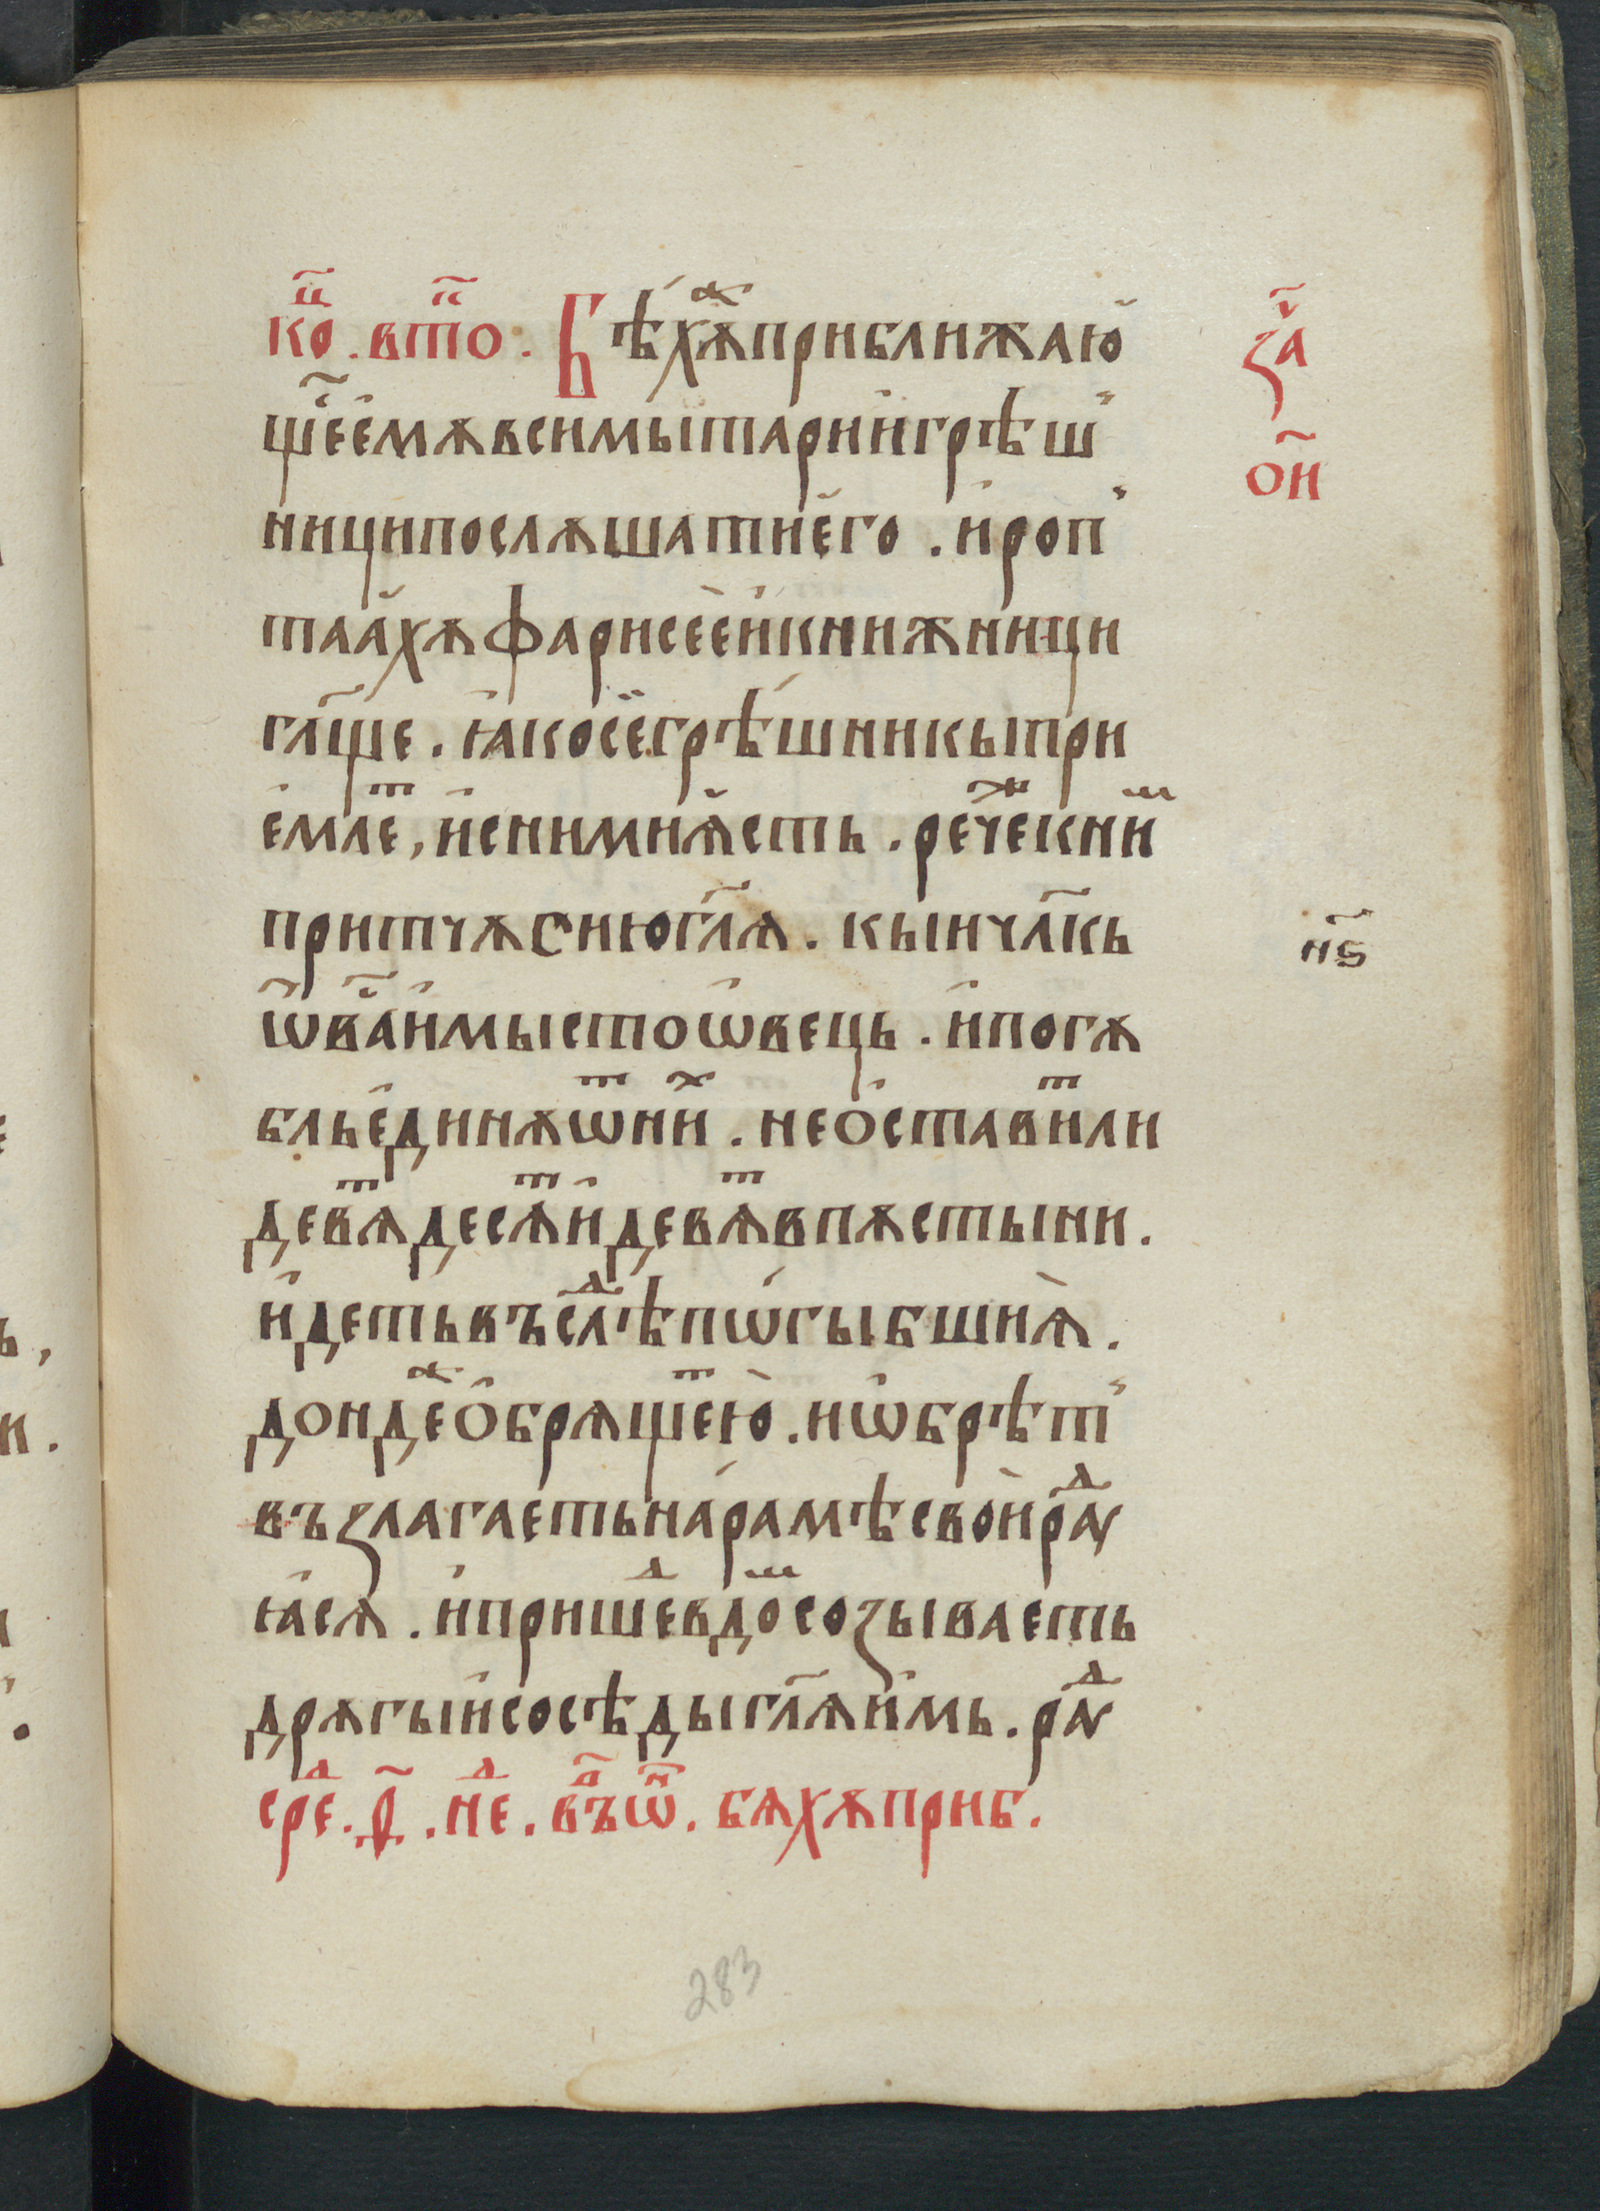 кѡⷰ҇ . втⷪ҇о . Бѣ́хѫⷤприближаю̑
щеⷭ҇ е҆мѫвсимы́тарии҆грѣш
ниципослѫшатиє҆го . и҆роп
тааⷯ҇хѫфарисе́еи҆книжници
гл҃ще . ꙗ҆косе́грѣ́шникыпри
є҆млеⷮ , и҆снимиꙗ҆сть . реⷱ҇жекниⷲ
притчѫсиюгл҃ѧ . кыичл҃кь
ѿваⷭ҇и҆мыстоѡ҆вець . и҆погѫ
бльє҆динѫѿниⷯ . неѻ҆ставиⷮли
девѧⷮдесѧⷮи҆девѧⷮвпѫстыни .
и҆детьвъслѣⷣпѡ́гыбшиѧ̀ .
дондеⷤѻ҆брѧщеⷮю̀ . иѡ҆брѣт
възлагаетьна́рамѣсвои̑раⷣѵ
ꙗ҆сѧ . и҆пришеⷣвдоⷨсозываеть
дрѫгыи҆сосѣдыгл҃ѧи҆мь . раⷣѵ
среⷣ . ҂ . неⷣ . въⷩ҇ѿ . бѫхѫприб .
за҃
ои҃
нѕ҃
283